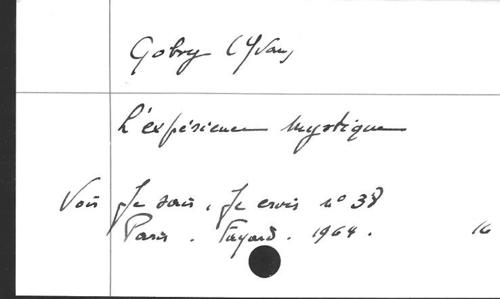 Gobry (Yvan)
L'expérience mystique
Voir Je sais, Je crois n° 38
Paris. Fayard. 1964. 16